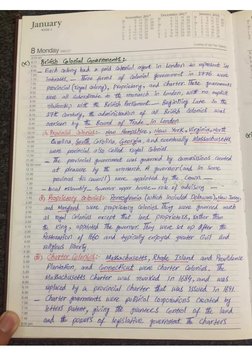 January
8 Monday
British Colonial Governments:
— Each colony had a paid colonial agent in London to represent its
interests. — Three forms of colonial government in 1776 were
provincial (royal colony), proprietary, and charter. These governments
were all subordinate to the monarch in London, with no explicit
relationship with the British Parliament. — Beginning late in the
17th century, the administration of all British colonies was
overseen by the Board of Trade in London.
Provincial Colonies: New Hampshire, New York, Virginia, North
Carolina, South Carolina, Georgia, and eventually Massachusetts
were provincial also called royal colonies.
— The provincial government was governed by commissions created
at pleasure by the monarch. A governor (and in some
provinces his council) were appointed by the Crown.
assembly — Governor, upper house — role of advisory
Proprietary Colonies: Pennsylvania (which included Delaware), New Jersey,
and Maryland were proprietary colonies. They were governed much
as royal colonies except that lord proprietors, rather than
the king, appointed the governor. They were set up after the
Restoration of 1660 and typically enjoyed greater civil and
religious liberty.
Charter Colonies: Massachusetts, Rhode Island and Providence
Plantation, and Connecticut were charter colonies. The
Massachusetts charter was revoked in 1684, and was
replaced by a provincial charter that was issued in 1691.
— Charter governments were political corporations created by
letters patent, giving the grantees control of the land
and the powers of legislative government. The charters